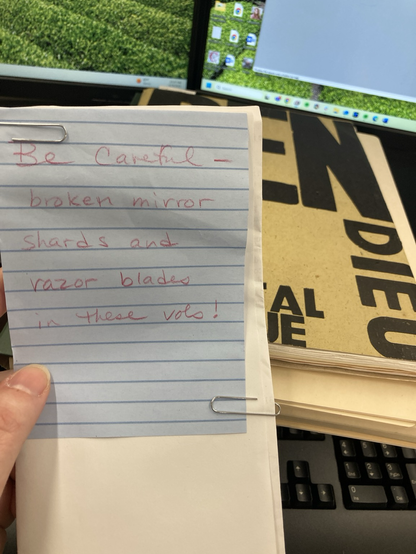 Be Careful -
broken mirror
shards and
razor blades
in these vols!
DIEU